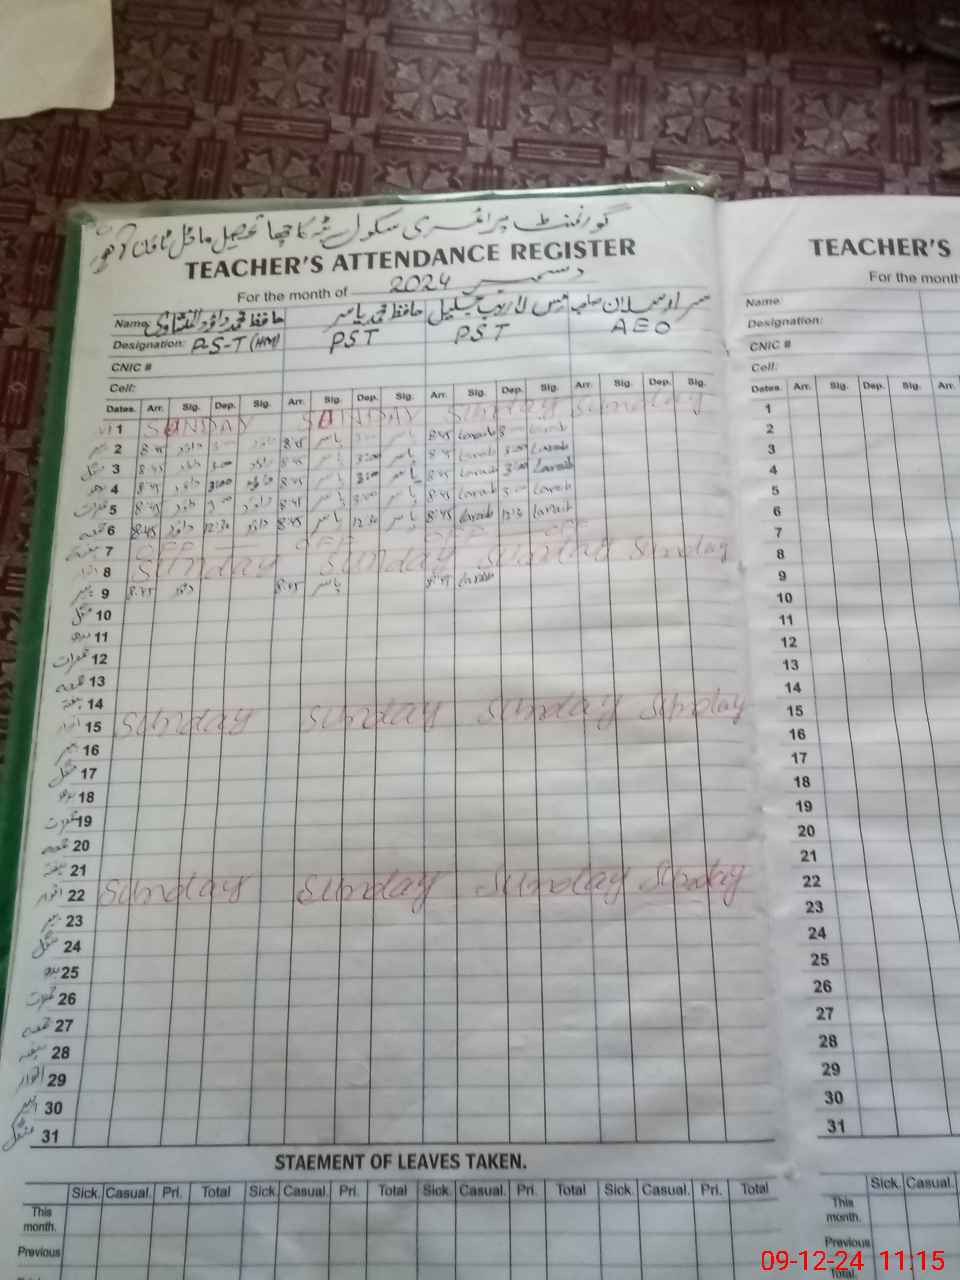 گورنمنٹ پرائمری سکول
TEACHER'S ATTENDANCE REGISTER
For the month of دسمبر 2024
Name: حافظ محمد داؤد حافظ محمد یاسر مس لاریب
Designation: P-S-T (HM) PST PST AEO
CNIC #
Cell:
Dates. Arr. Sig. Dep. Sig. Arr. Sig. Dep. Sig. Arr. Sig. Dep. Sig. Arr. Sig. Dep. Sig.
1 SUNDAY SUNDAY Sunday Sunday
پیر 2 8:45 داؤد 8:45 یاسر یاسر 8:45 Laraib
منگل 3 8:45 داؤد 3:00 داؤد 8:45 یاسر 3:00 یاسر 8:45 Laraib 3:00 Laraib
بدھ 4 8:45 داؤد 3:00 داؤد 8:45 یاسر 3:00 یاسر 8:45 Laraib 3:00 Laraib
جمعرات 5 8:45 داؤد 3:00 داؤد 8:45 یاسر 3:00 یاسر 8:45 Laraib 3:00 Laraib
جمعہ 6 8:45 داؤد 12:30 داؤد 8:45 یاسر 12:30 یاسر 8:45 Laraib 12:30 Laraib
ہفتہ 7 OFF OFF OFF OFF
اتوار 8 Sunday Sunday Sunday Sunday
پیر 9 8:45 داؤد 8:45 یاسر 8:45 Laraib
منگل 10
بدھ 11
جمعرات 12
جمعہ 13
ہفتہ 14
اتوار 15 Sunday Sunday Sunday Sunday
پیر 16
منگل 17
بدھ 18
جمعرات 19
جمعہ 20
ہفتہ 21
اتوار 22 Sunday Sunday Sunday Sunday
پیر 23
منگل 24
بدھ 25
جمعرات 26
جمعہ 27
ہفتہ 28
اتوار 29
پیر 30
منگل 31
STAEMENT OF LEAVES TAKEN.
Sick. Casual. Pri. Total Sick. Casual. Pri. Total Sick. Casual. Pri. Total Sick. Casual. Pri. Total
This month.
Previous
TEACHER'S
For the month
Name
Designation:
CNIC #
Cell:
Dates. Arr. Sig. Dep. Sig. Arr.
1
2
3
4
5
6
7
8
9
10
11
12
13
14
15
16
17
18
19
20
21
22
23
24
25
26
27
28
29
30
31
Sick. Casual.
This month.
Previous
Total.
09-12-24 11:15